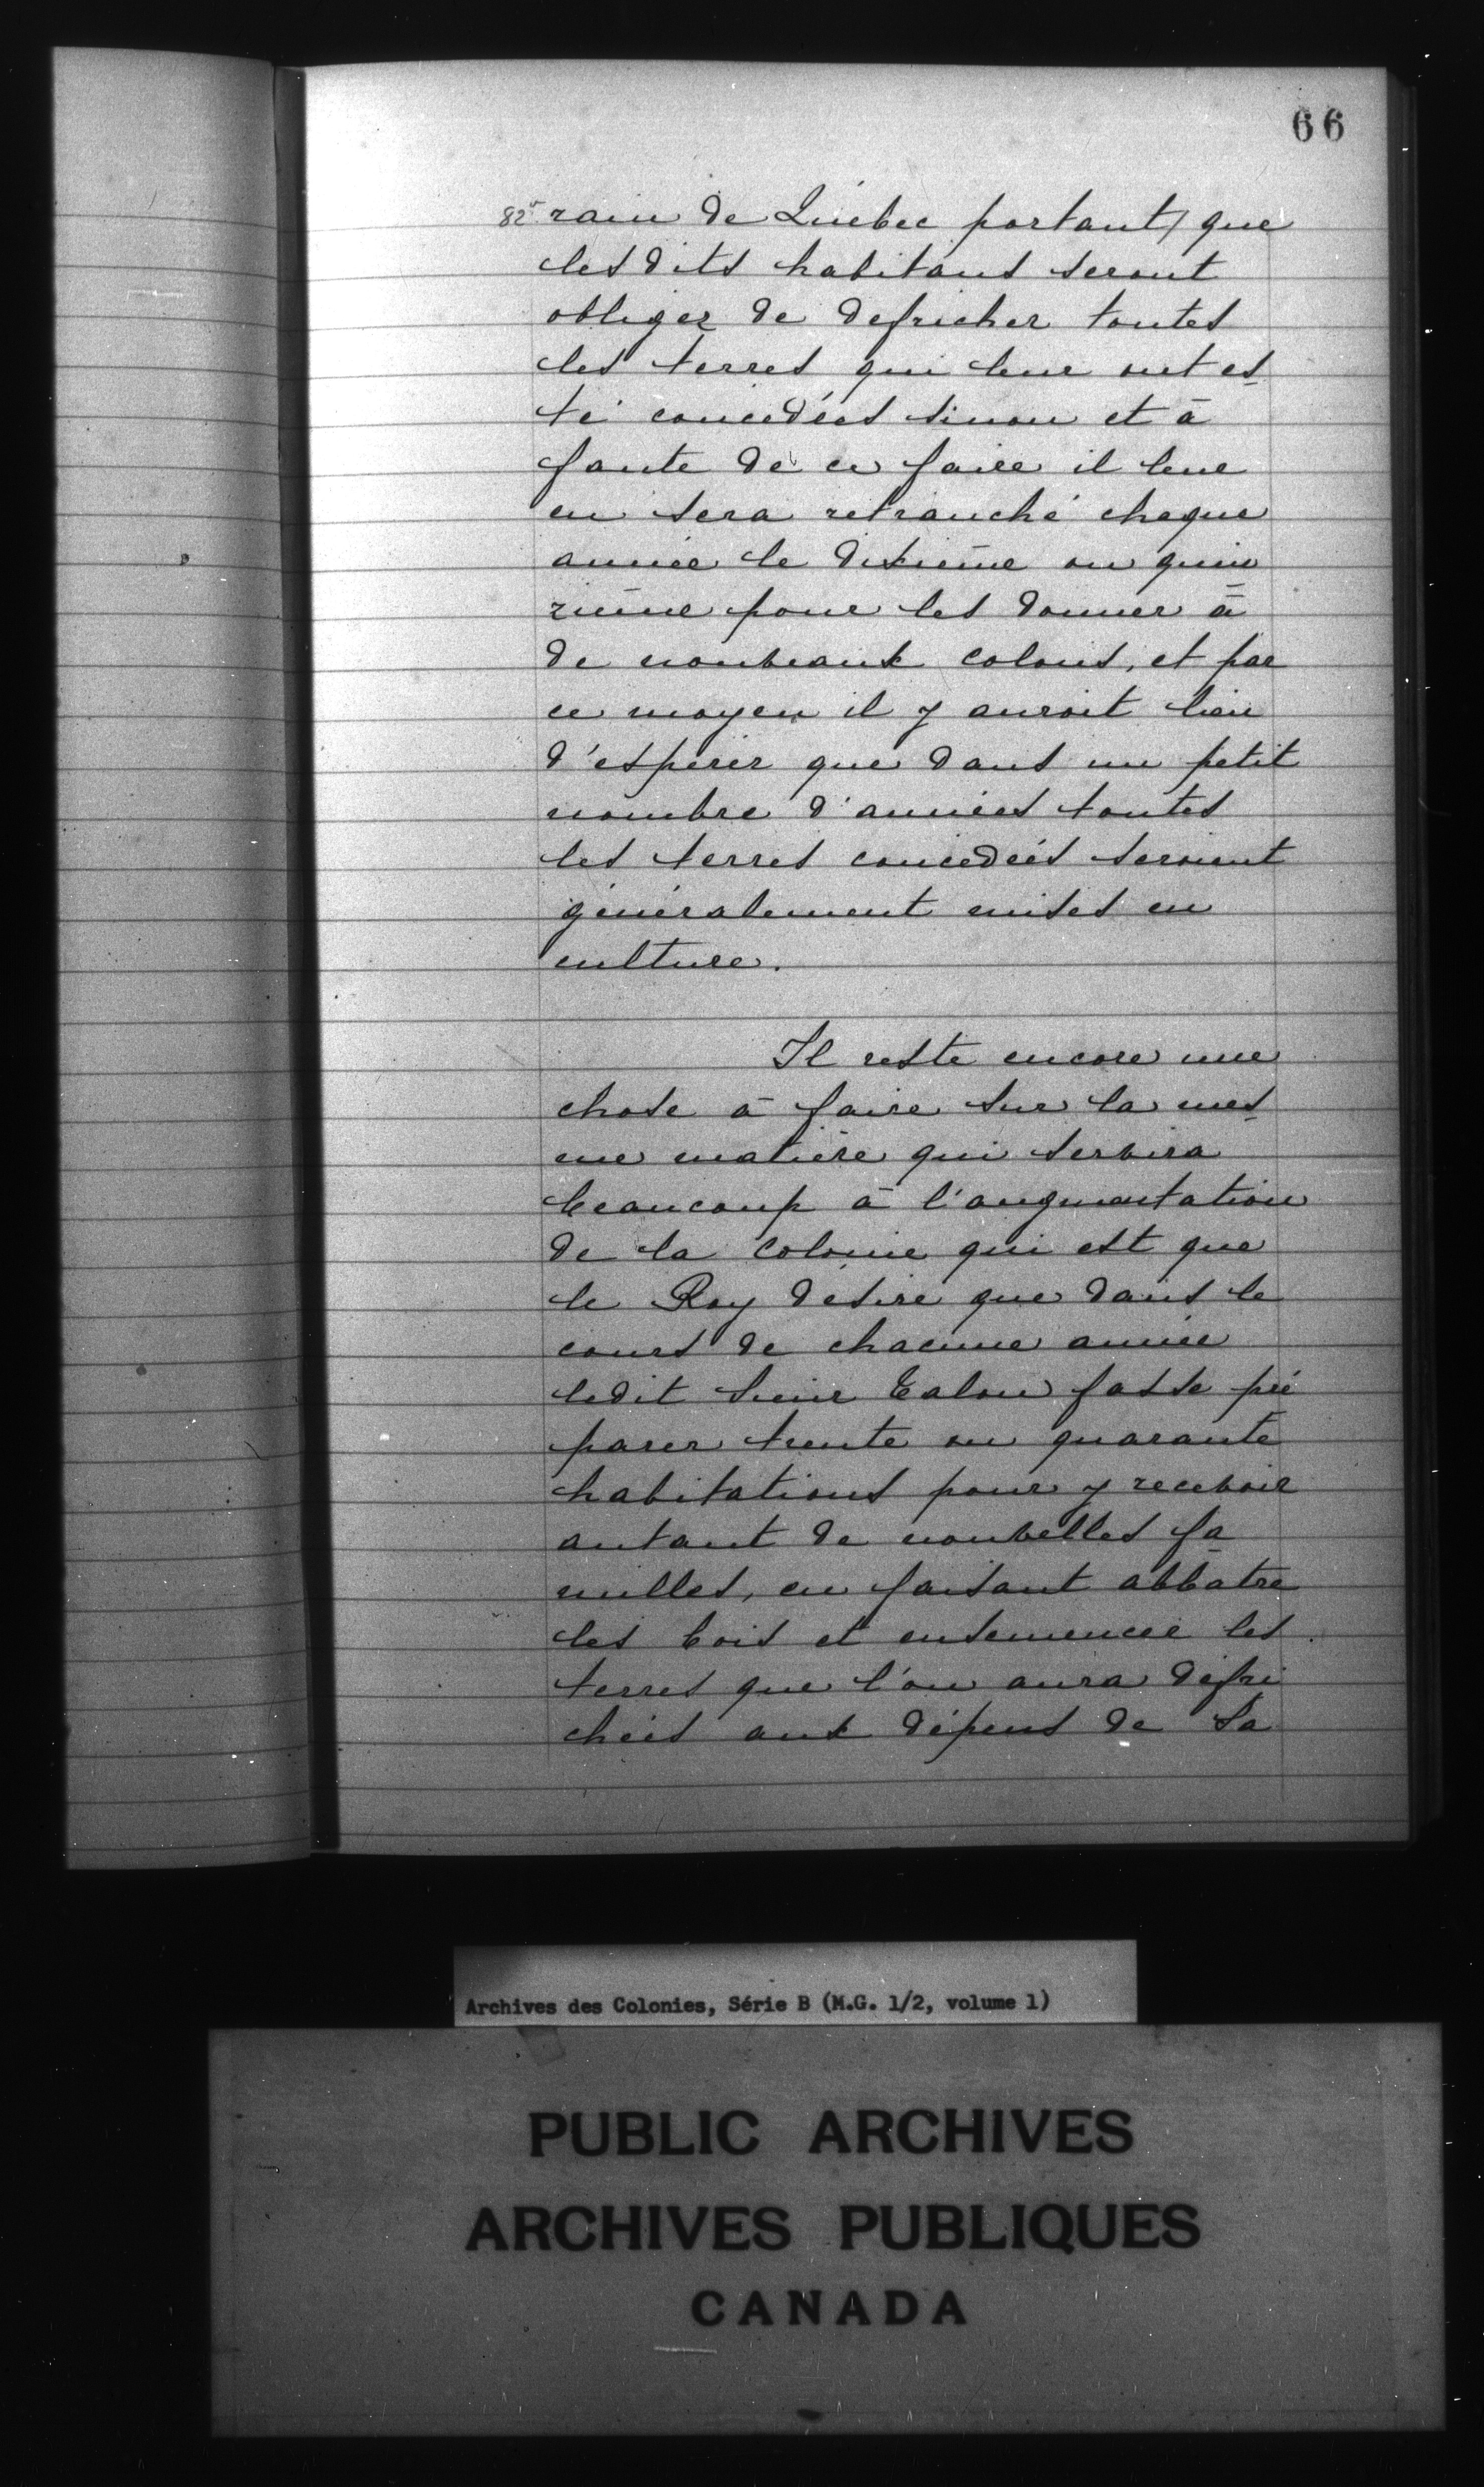 66
82v rain de Quebec portant/ que
les dits habitans seront
obligez de defricher toutes
les terres qui leur ont es
té concedées sinon et à
faute de ce faire il leur
en sera retranché chaque
année le dixieme ou quin
zieme pour les donner à
de nouveaux colons, et par
ce moyen il y auroit lieu
d'espérer que dans un petit
nombre d'années toutes
les terres concedées seroient
généralement mises en
culture.
Il reste encore une
chose à faire sur la mes
me matière qui servira
beaucoup à l'augmentation
de la colonie qui est que
le Roy désire que dans le
cours de chacune année
ledit Sieur Talon fasse pré
parer trente ou quarante
habitations pour y recevoir
autant de nouvelles fa
milles, en faisant abbatre
les bois et ensemencer les
terres que l'on aura défri
cheés aux dépens de Sa
Archives des Colonies, Série B (M.G. 1/2, volume 1)
PUBLIC ARCHIVES
ARCHIVES PUBLIQUES
CANADA